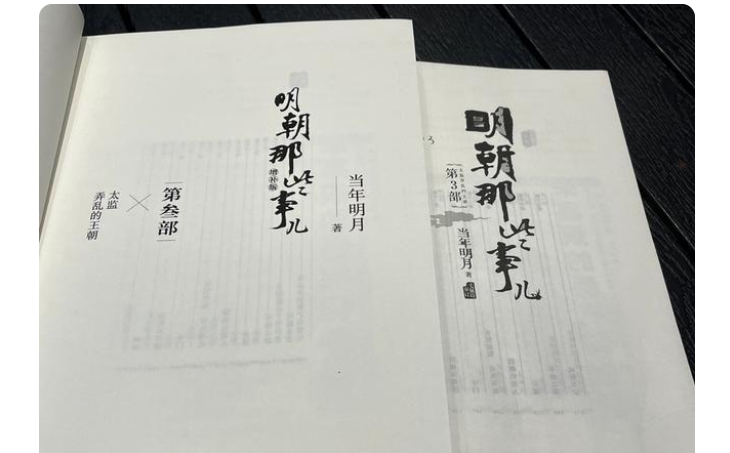 明朝那些事儿
增补版
当年明月
著
第叁部
太监
弄乱的王朝
明朝那些事儿
第3部
当年明月
著